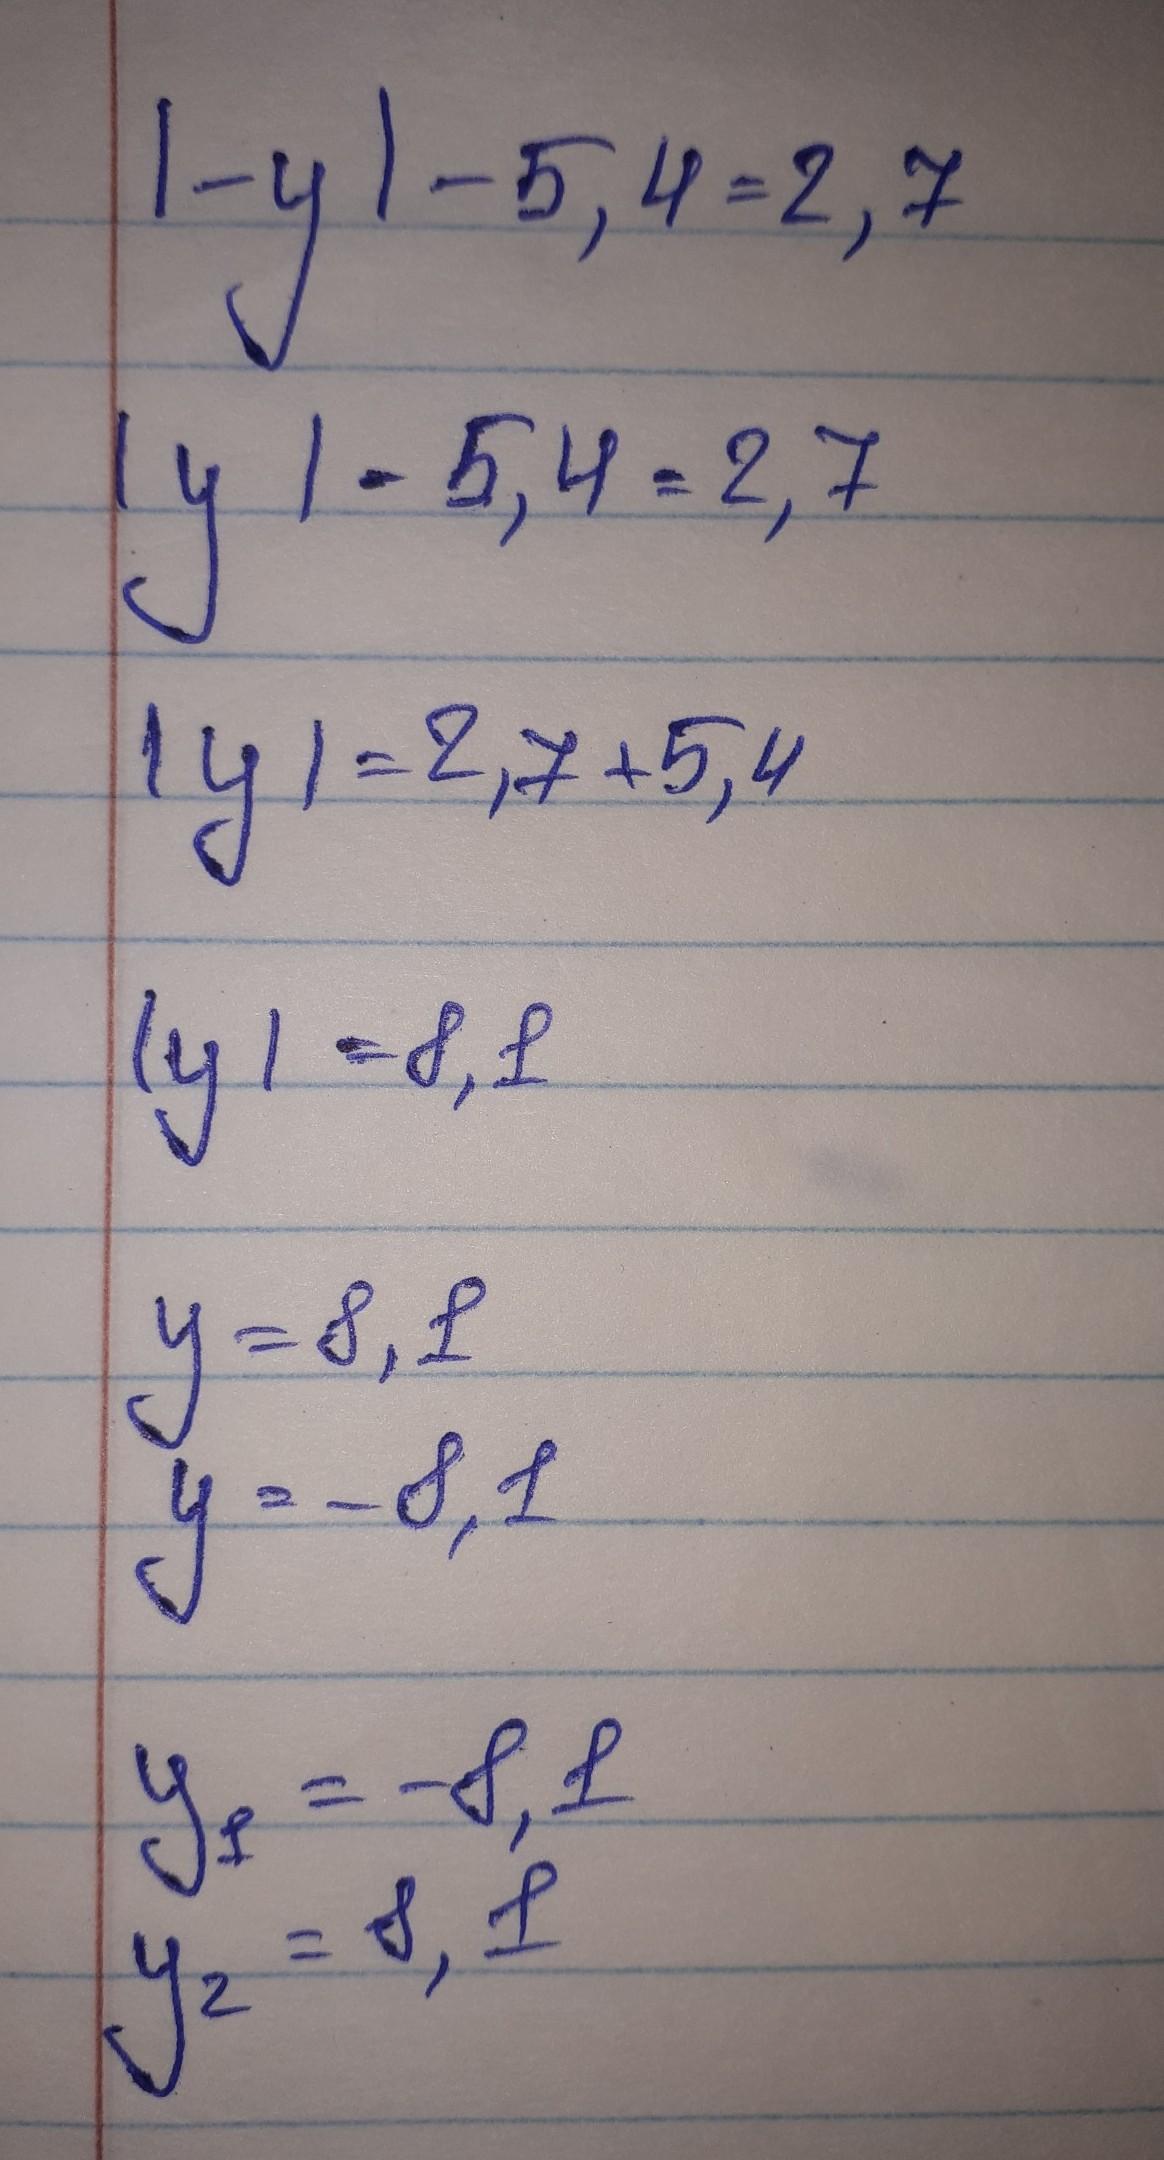 |-y|-5,4=2,7
|y|-5,4=2,7
|y|=2,7+5,4
|y|=8,1
y=8,1
y=-8,1
y₁=-8,1
y₂=8,1